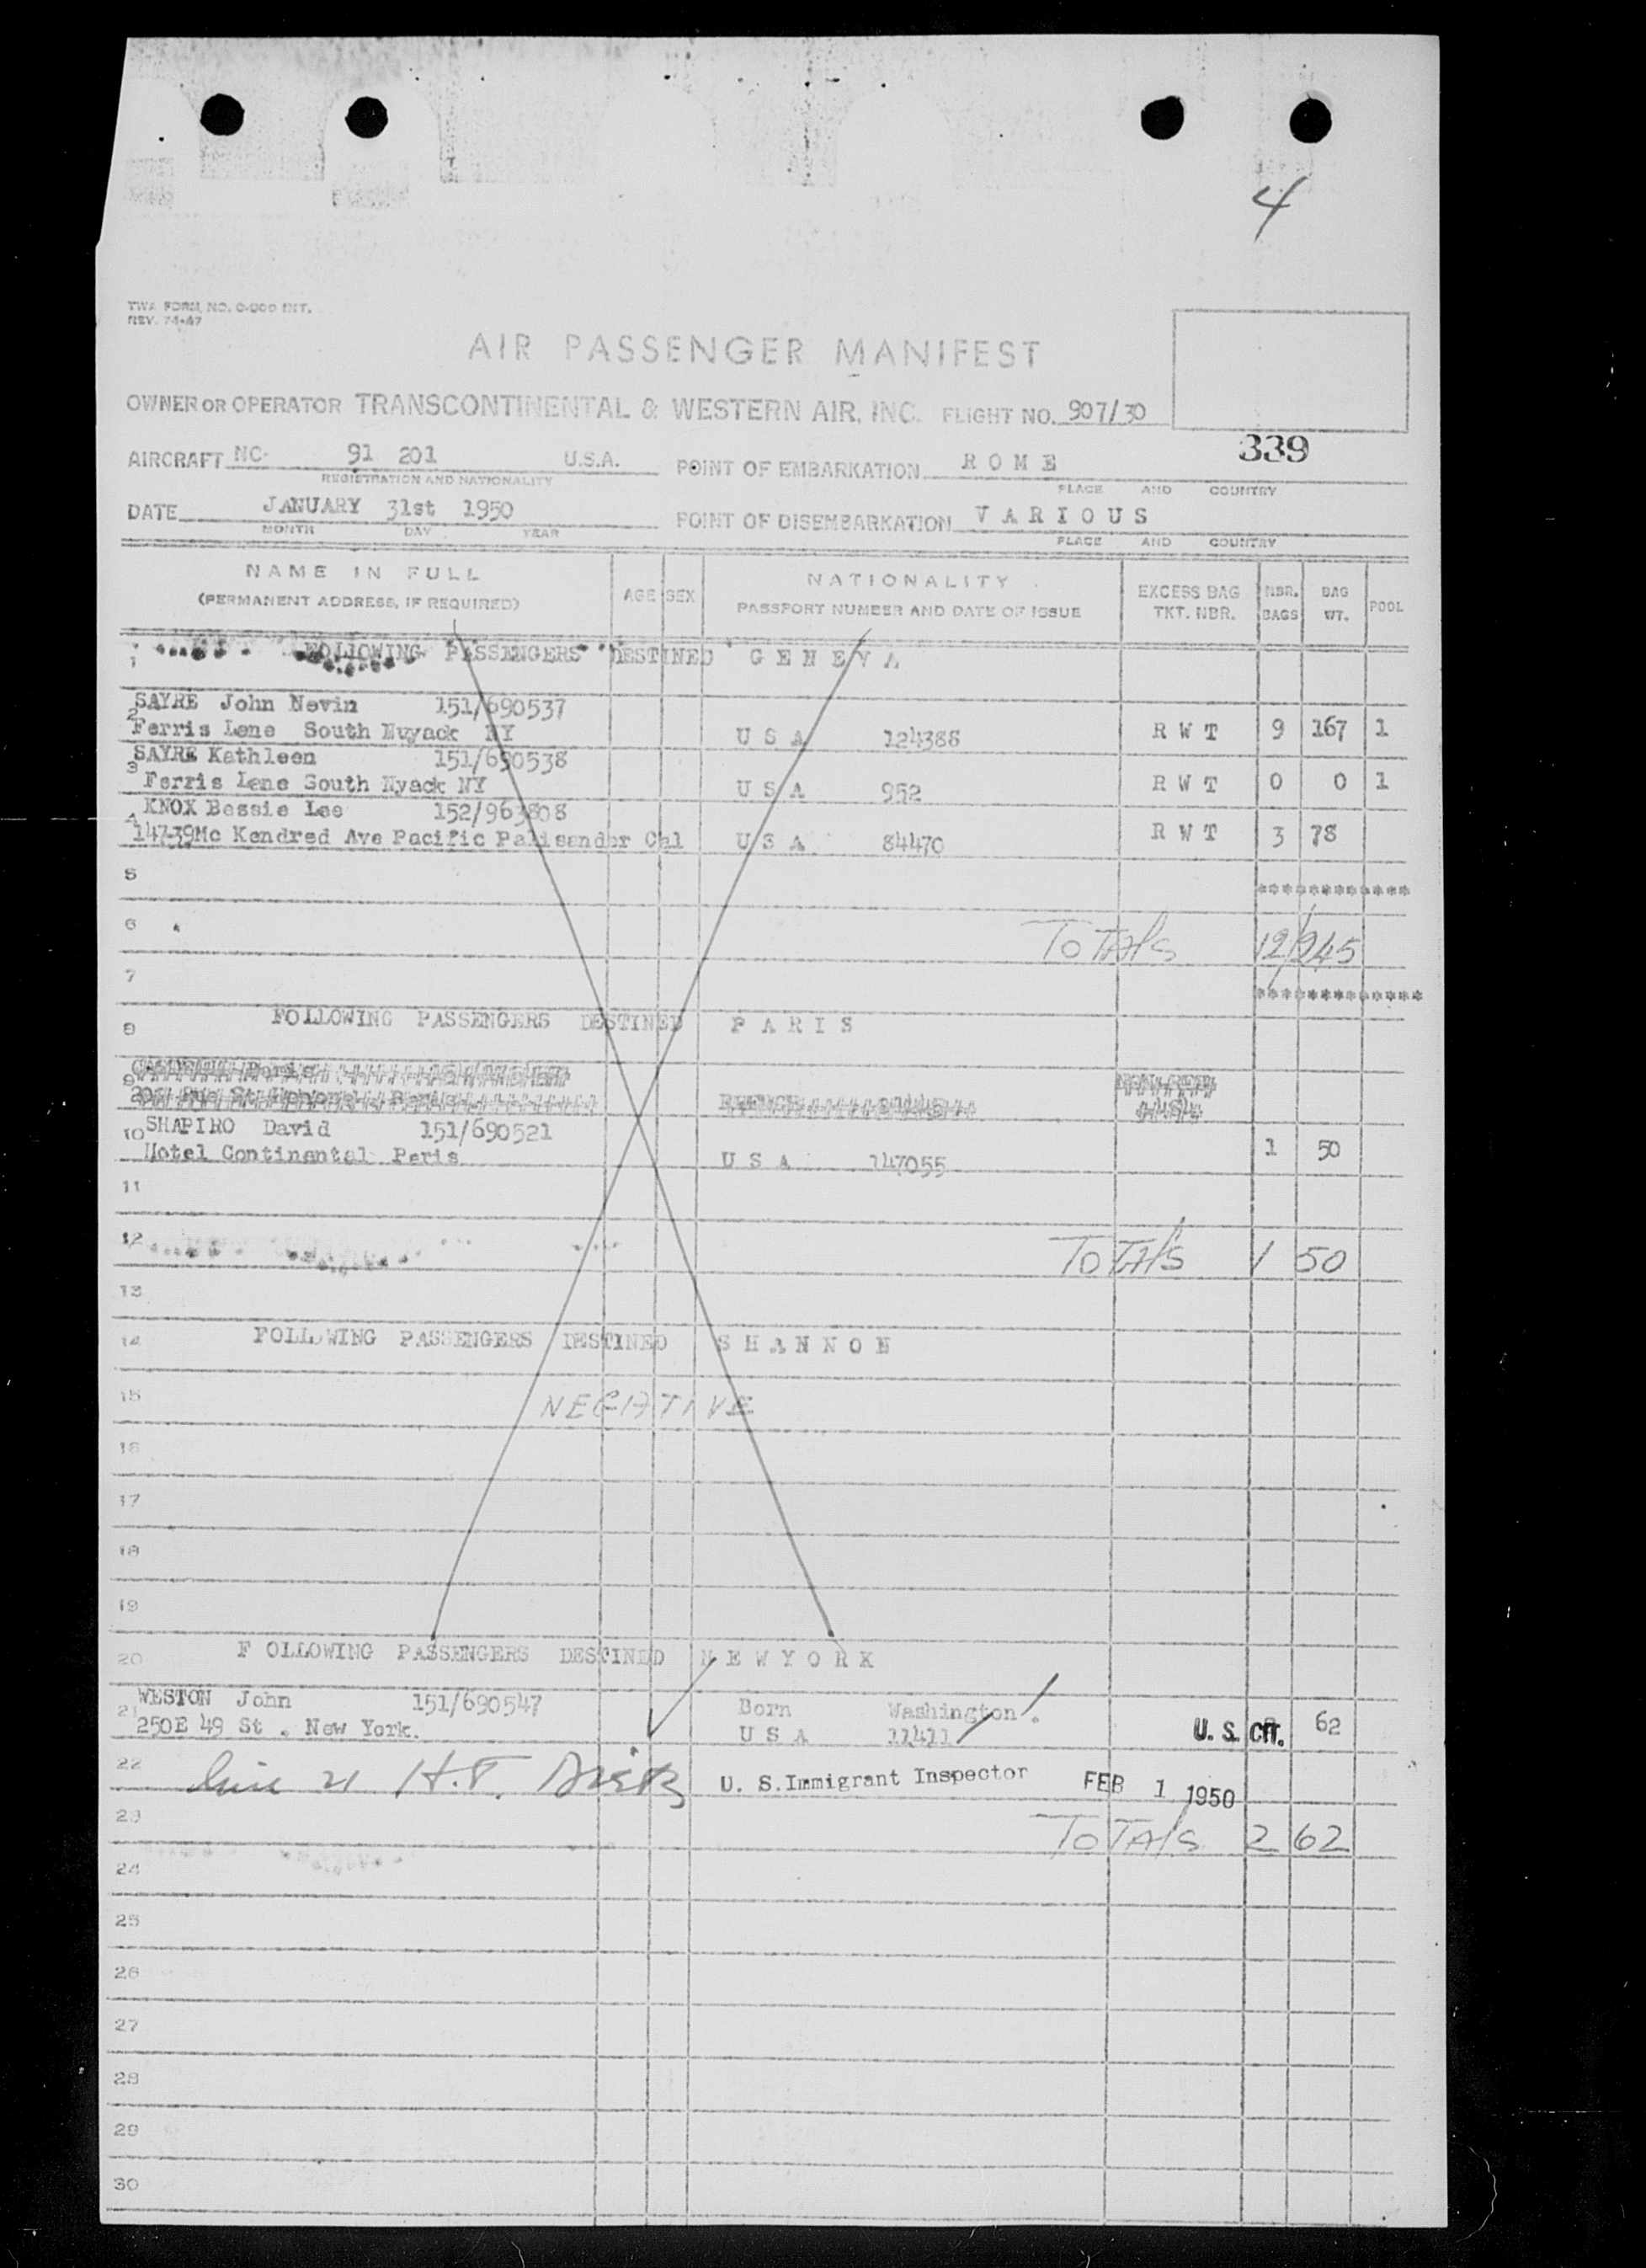 4
TWA FORM NO. 0-800 INT.
REV. 74-47
AIR PASSENGER MANIFEST
OWNER OR OPERATOR TRANSCONTINENTAL & WESTERN AIR, INC. FLIGHT NO. 907/30
339
AIRCRAFT NC- 91 201 U.S.A. POINT OF EMBARKATION R O M E
REGISTRATION AND NATIONALITY PLACE AND COUNTRY
DATE JANUARY 31st 1950 POINT OF DISEMBARKATION V A R I O U S
MONTH DAY YEAR PLACE AND COUNTRY
NAME IN FULL (PERMANENT ADDRESS, IF REQUIRED) AGE SEX NATIONALITY PASSPORT NUMBER AND DATE OF ISSUE EXCESS BAG TKT. NBR. NBR. BAGS BAG WT. POOL
1 FOLLOWING PASSENGERS DESTINED G E N E V A
2 SAYRE John Nevin 151/690537
Ferris Lane South Nuyack NY U S A 124388 R W T 9 167 1
3 SAYRE Kathleen 151/690538
Ferris Lane South Nyack NY U S A 952 R W T 0 0 1
4 KNOX Bessie Lee 152/963808
14739Mc Kendred Ave Pacific Palisander Cal U S A 84470 R W T 3 78
5 ************
6 TOTAlS 12/245
7 *************
8 FOLLOWING PASSENGERS DESTINED P A R I S
9
10 SHAPIRO David 151/690521
Hotel Continental Paris U S A 147055 1 50
11
12 TOTAlS 1 50
13
14 FOLLOWING PASSENGERS DESTINED S H A N N O N
15 NEGATIVE
16
17
18
19
20 F OLLOWING PASSENGERS DESTINED N E W Y O R K
21 WESTON John 151/690547 Born Washington.
250E 49 St . New York. U S A 11411 U. S. CIT. 62
22 line 21 H.T. U. S. Immigrant Inspector FEB 1 1950
23 TOTAlS 2 62
24
25
26
27
28
29
30